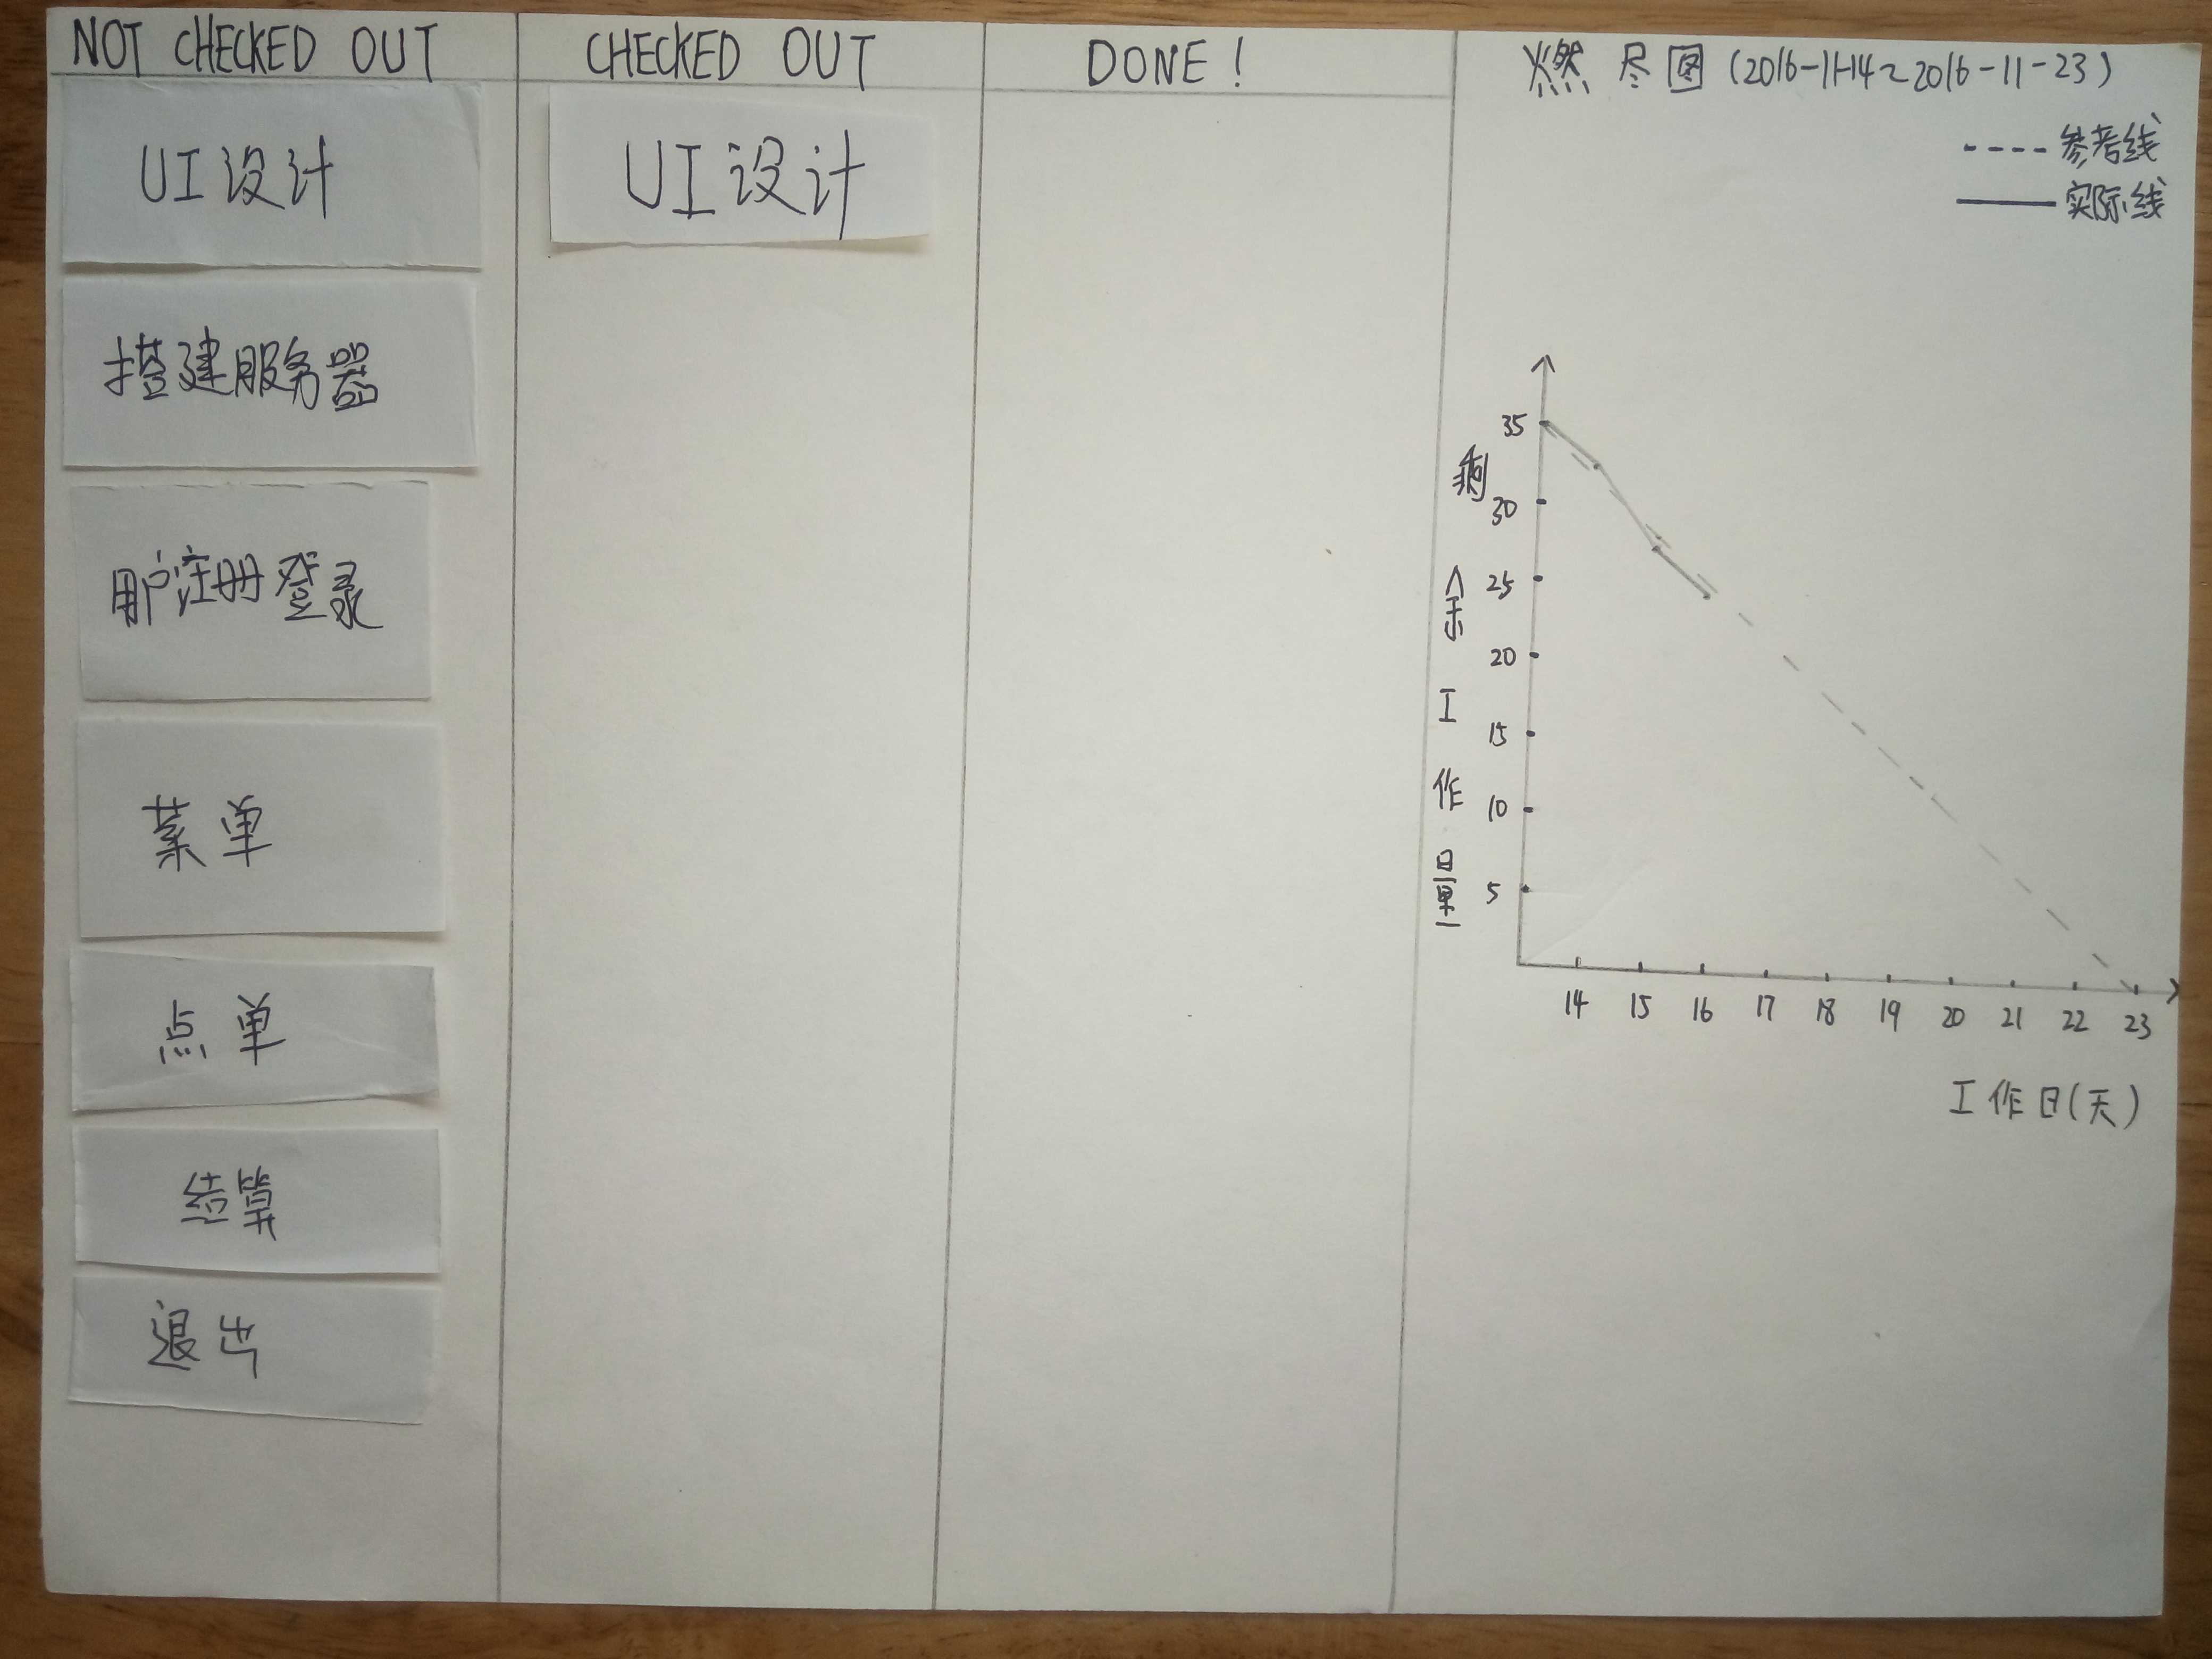 NOT CHECKED OUT
UI设计
搭建服务器
用户注册登录
菜单
点单
结算
退出
CHECKED OUT
UI设计
DONE!
燃尽图(2016-11-14~2016-11-23)
参考线
实际线
剩余工作量
35
30
25
20
15
10
5
14 15 16 17 18 19 20 21 22 23
工作日(天)